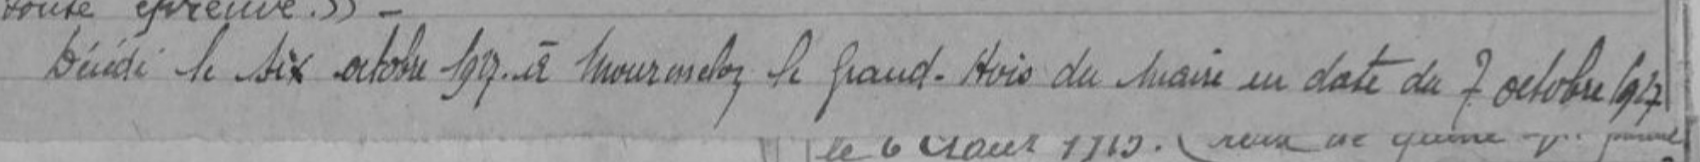 toute épreuve.)) -
Décédé le six octobre 1927. à Mourmelon le Grand - Avis du Maire en date du 7 octobre 1927
le 6 Août 1915. (